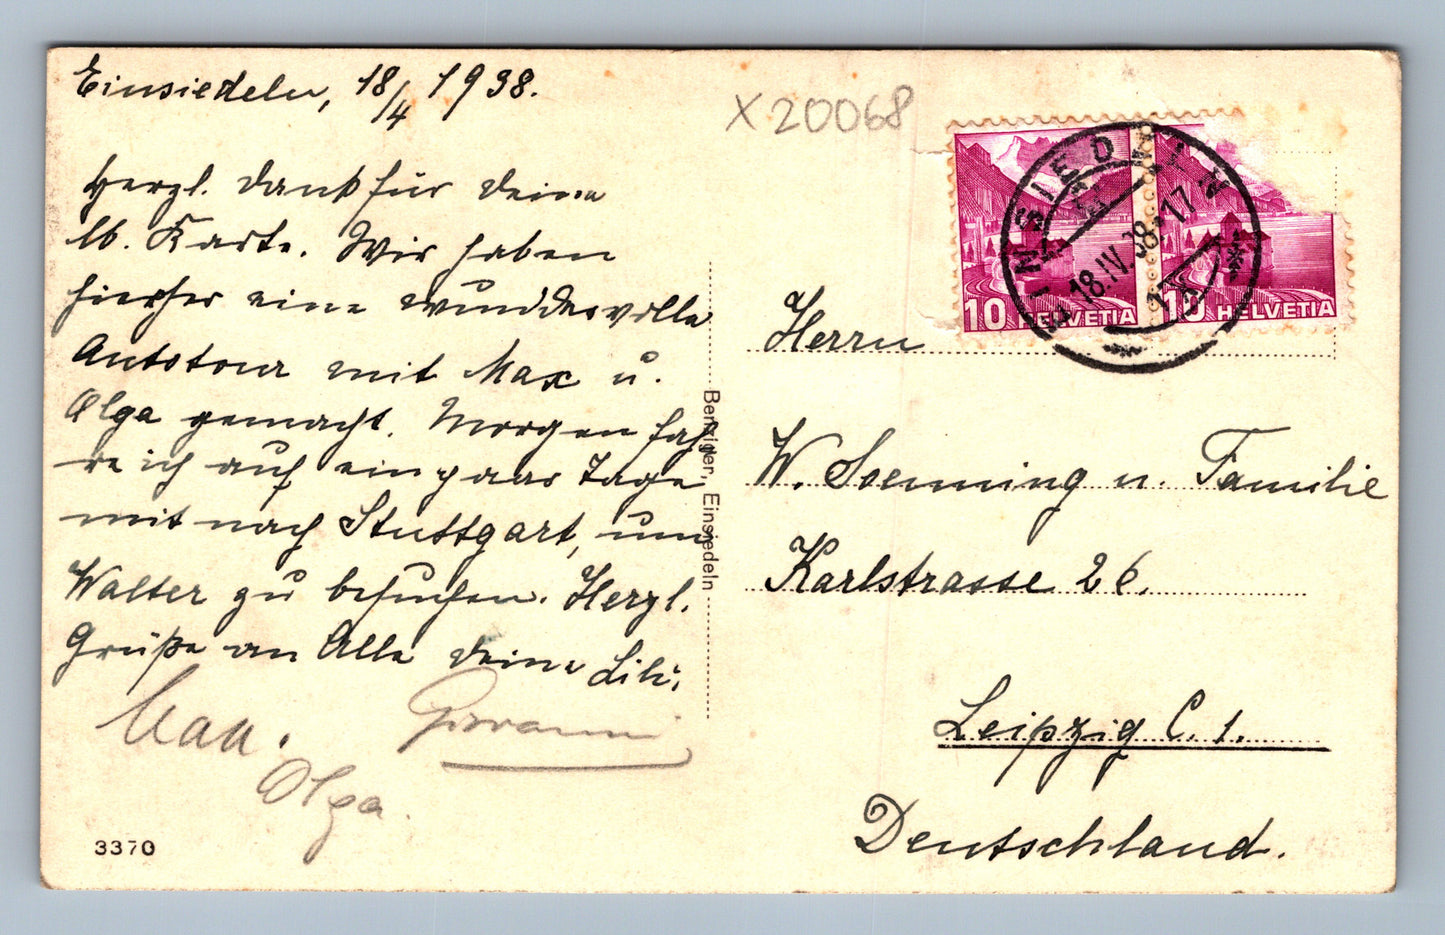 Einsiedeln, 18/4 1938.
X20068
Herzl. Dank für Deine
lb. Karte. Wir haben
hierher eine wundervolle
Autotour mit Max u.
Olga gemacht. Morgen fah
re ich auf ein paar Tage
mit nach Stuttgart, um
Walter zu besuchen. Herzl.
Grüße an Alle Deine Lili.
Giovanni
Olga.
3370
Benziger, Einsiedeln
EINSIEDELN
18.IV.38.-17
10 HELVETIA
10 HELVETIA
Herrn
W. Soenning u. Familie
Karlstrasse 26.
Leipzig C. 1.
Deutschland.